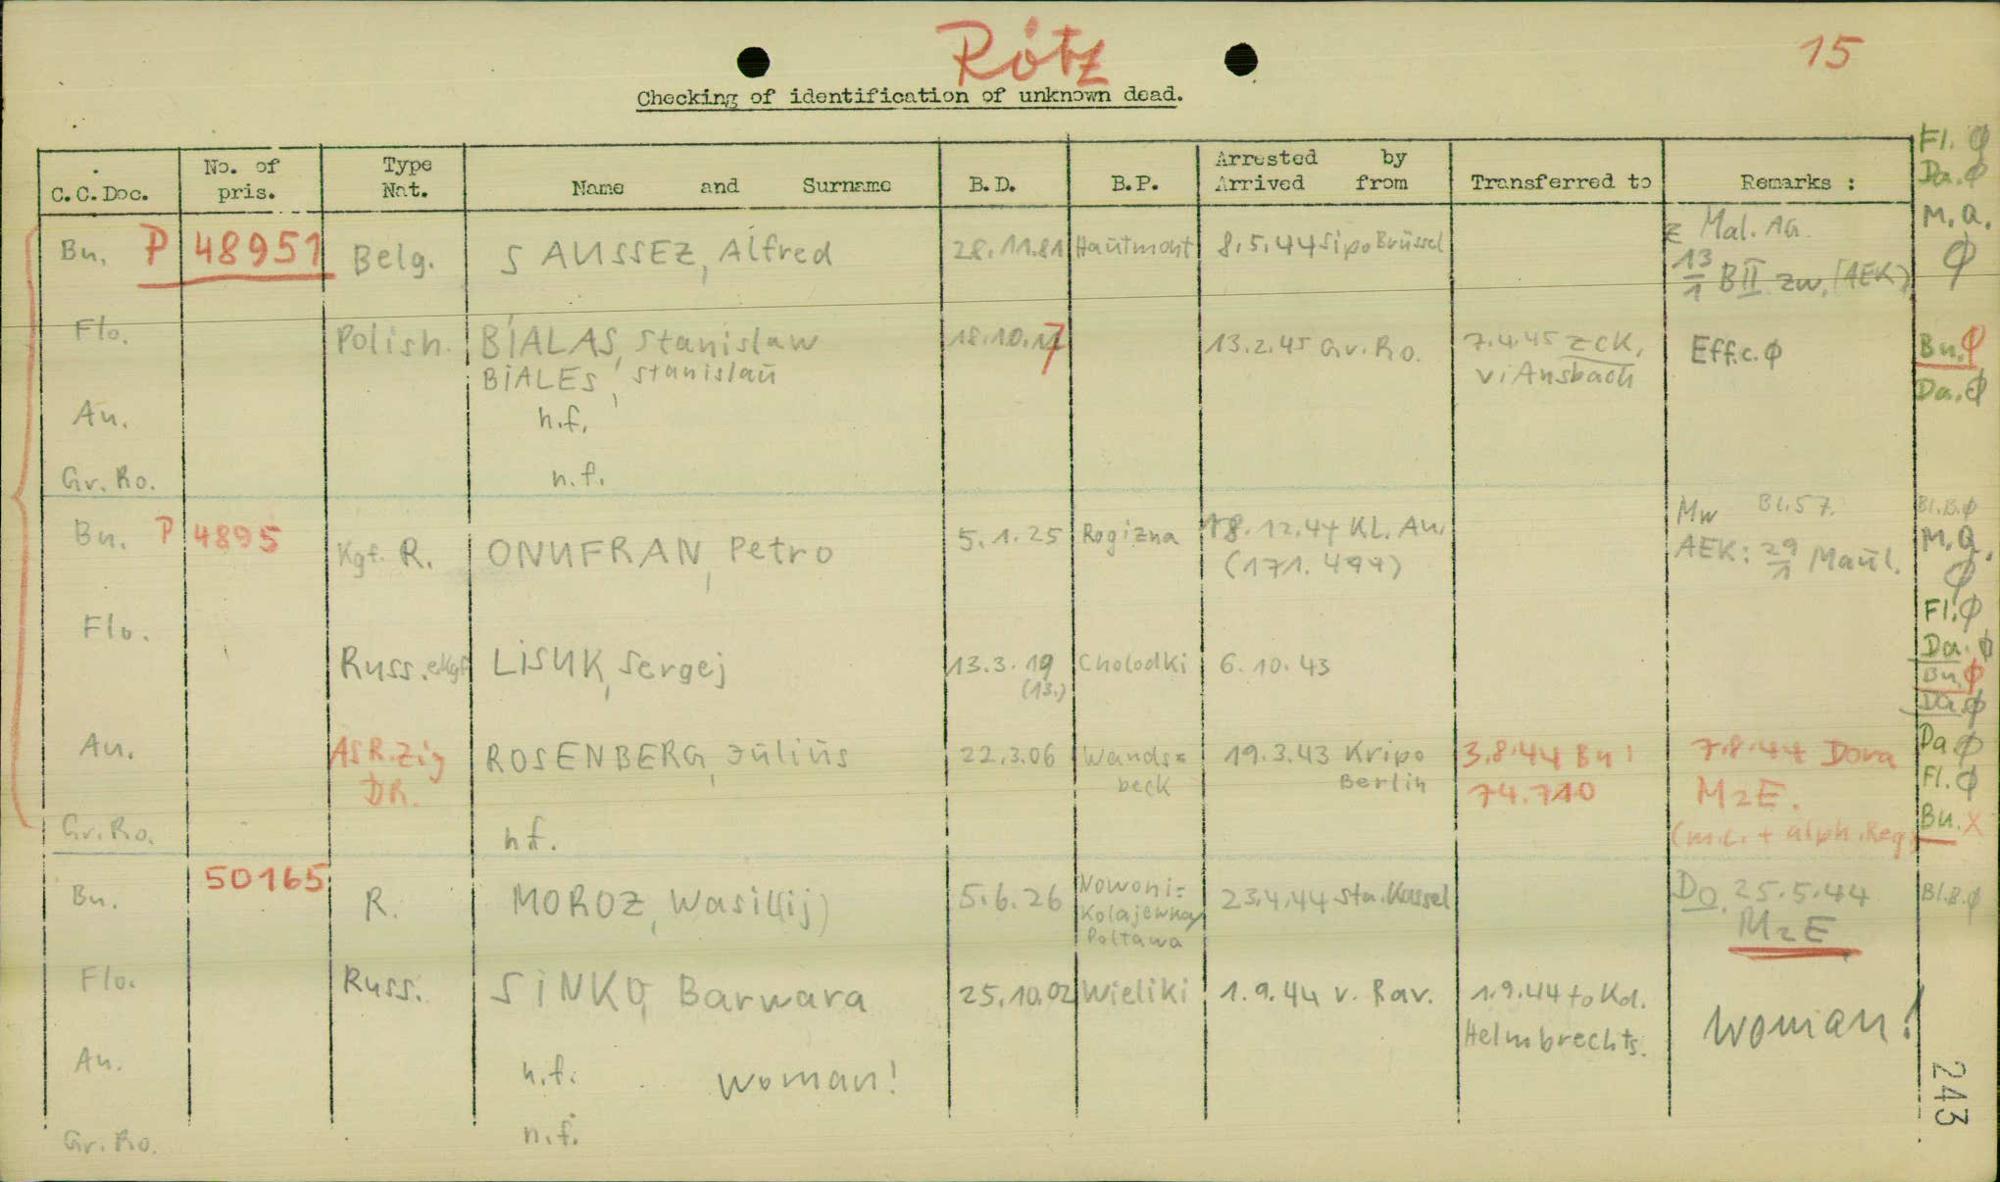 Rötz
15
Checking of identification of unknown dead.
C.C.Doc.
No. of pris.
Type Nat.
Name and Surname
B.D.
B.P.
Arrested by
Arrived from
Transferred to
Remarks :
Fl. ϕ
Da. ϕ
M.A.
ϕ
Bn. P 48951 Belg. SAUSSEZ, Alfred 28.11.81 Hautmont 8.5.44 Sipo Brüssel
Mal. AG.
13/1 BII zw. (AEK)
Flo. Polish. BIALAS, Stanislaw 18.10.17 13.2.45 Gr.Ro. 7.4.45 ZCK, Eff.c. ϕ Bn. ϕ
BIALES, Stanislaŭ v. Ansbach Da. ϕ
An. n.f.
Gr.Ro. n.f.
Bn. P 4895 Kgf. R. ONUFRAN, Petro 5.1.25 Rogizna 18.12.44 KL. Au. Mw Bl.57. Bl.B. ϕ
(171.499) AEK: 29/1 Maŭl. M.A. ϕ
Flo. Fl. ϕ
Russ. eKgf LISUK, Sergej 13.3.19 Cholodki 6.10.43 Da. ϕ
(13.) Bn. ϕ
Da. ϕ
Au. AS R. Zig ROSENBERG, Jŭliŭs 22.3.06 Wands= 19.3.43 Kripo 3.8.44 Bu! 7.8.44 Dora Da. ϕ
DR. beck Berlin 74.710 MzE. Fl. ϕ
Gr.Ro. n.f. (m.c. + alph. Reg) Bn. X
Bn. 50165 R. MOROZ, Wasil(ij) 5.6.26 Nowoni= 23.4.44 Sta. Kassel Do. 25.5.44 Bl.B. ϕ
Kolajewka/
Poltawa
MzE
Flo. Russ. SINKO, Barwara 25.10.02 Wieliki 1.9.44 v. Rav. 1.9.44 to Kd. woman!
Helmbrechts.
Au. n.f. woman!
Gr.Ro. n.f.
243